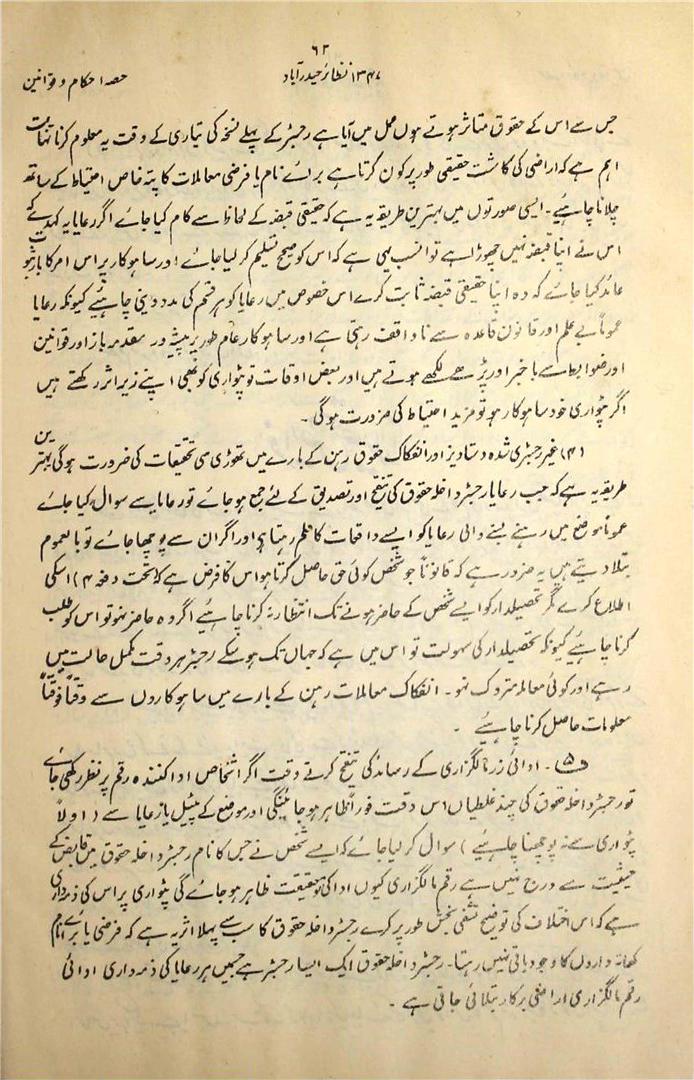 ۶۲
۱۳۴۷ نظائر حیدرآباد
حصہ احکام و قوانین
جس سے اس کے حقوق متاثر ہوتے ہوں عمل میں آیا ہے رجسٹر کے پہلے نسخہ کی تیاری کے وقت یہ معلوم کرنا نہایت
اہم ہے کہ اراضی کی کاشت حقیقی طور پر کون کرتا ہے برائے نام یا فرضی معاملات کا پتہ خاص احتیاط کے ساتھ
چلانا چاہئیے ۔ ایسی صورتوں میں بہترین طریقہ یہ ہے کہ حقیقی قبضہ کے لحاظ سے کام کیا جائے اگر رعایا یہ کہدے کہ
اس نے اپنا قبضہ نہیں چھوڑا ہے تو انسب یہی ہے کہ اس کو صحیح تسلیم کر لیا جائے اور ساہوکار پر اس امر کا بار ثبوت
عائد کیا جائے کہ وہ اپنا حقیقی قبضہ ثابت کرے اس خصوص میں رعایا کو ہر قسم کی مدد دینی چاہئیے کیونکہ رعایا
عموماً بے علم اور قانون قاعدہ سے ناواقف رہتی ہے اور ساہوکار عام طور پر پیشہ ور مقدمہ باز اور قوانین
اور ضوابط سے باخبر اور پڑھے لکھے ہوتے ہیں اور بعض اوقات تو پٹواری کو بھی اپنے زیر اثر رکھتے ہیں
اگر پٹواری خود ساہوکار ہو تو مزید احتیاط کی ضرورت ہوگی ۔
(۴) غیر رجسٹری شدہ دستاویز اور انفکاک حقوق رہن کے بارے میں تھوڑی سی تحقیقات کی ضرورت ہوگی بہترین
طریقہ یہ ہے کہ جب رعایا رجسٹر داخلہ حقوق کی تنقیح اور تصدیق کے لئے جمع ہو جائے تو رعایا سے سوال کیا جائے
عموماً موضع میں رہنے بسنے والی رعایا کو ایسے واقعات کا علم رہتا ہے اور اگر ان سے پوچھا جائے تو بالعموم
بتلا دیتے ہیں یہ ضرور ہے کہ قانوناً جو شخص کوئی حق حاصل کرتا ہو اس کا فرض ہے کہ (تحت دفعہ ۴) اسکی
اطلاع کرے مگر تحصیلدار کو ایسے شخص کے حاضر ہونے تک انتظار نہ کرنا چاہئیے اگر وہ حاضر نہو تو اس کو طلب
کرنا چاہئیے کیونکہ تحصیلدار کی سہولت تو اس میں ہے کہ جہاں تک ہو سکے رجسٹر ہر وقت مکمل حالت میں
رہے اور کوئی معاملہ متروک نہو ۔ انفکاک معاملات رہن کے بارے میں ساہوکاروں سے وقتاً فوقتاً
معلومات حاصل کرنا چاہئیے ۔
(۵) ۔ ادائی زر مالگزاری کے رسائد کی تنقیح کرتے وقت اگر اشخاص ادا کنندہ رقم پر نظر رکھی جائے
تو رجسٹر داخلہ حقوق کی چند غلطیاں اس وقت فوراً ظاہر ہو جائینگی اور موضع کے پٹیل یا رعایا سے (اولاً
پٹواری سے نہ پوچھنا چاہئیے) سوال کر لیا جائے کہ ایسے شخص نے جس کا نام رجسٹر داخلہ حقوق میں قابض کے
حیثیت سے درج نہیں ہے رقم مالگزاری کیوں ادا کی تو حقیقت ظاہر ہو جائے گی پٹواری پر اس کی ذمہ داری
ہے کہ اس اختلاف کی توضیح تشفی بخش طور پر کرے رجسٹر داخلہ حقوق کا سب سے پہلا اثر یہ ہے کہ فرضی یا برائے نام
کھاتہ داروں کا وجود باقی نہیں رہتا ۔ رجسٹر داخلہ حقوق ایک ایسا رجسٹر ہے جسمیں ہر رعایا کی ذمہ داری ادائی
رقم مالگزاری اراضی برکار بتلائی جاتی ہے ۔